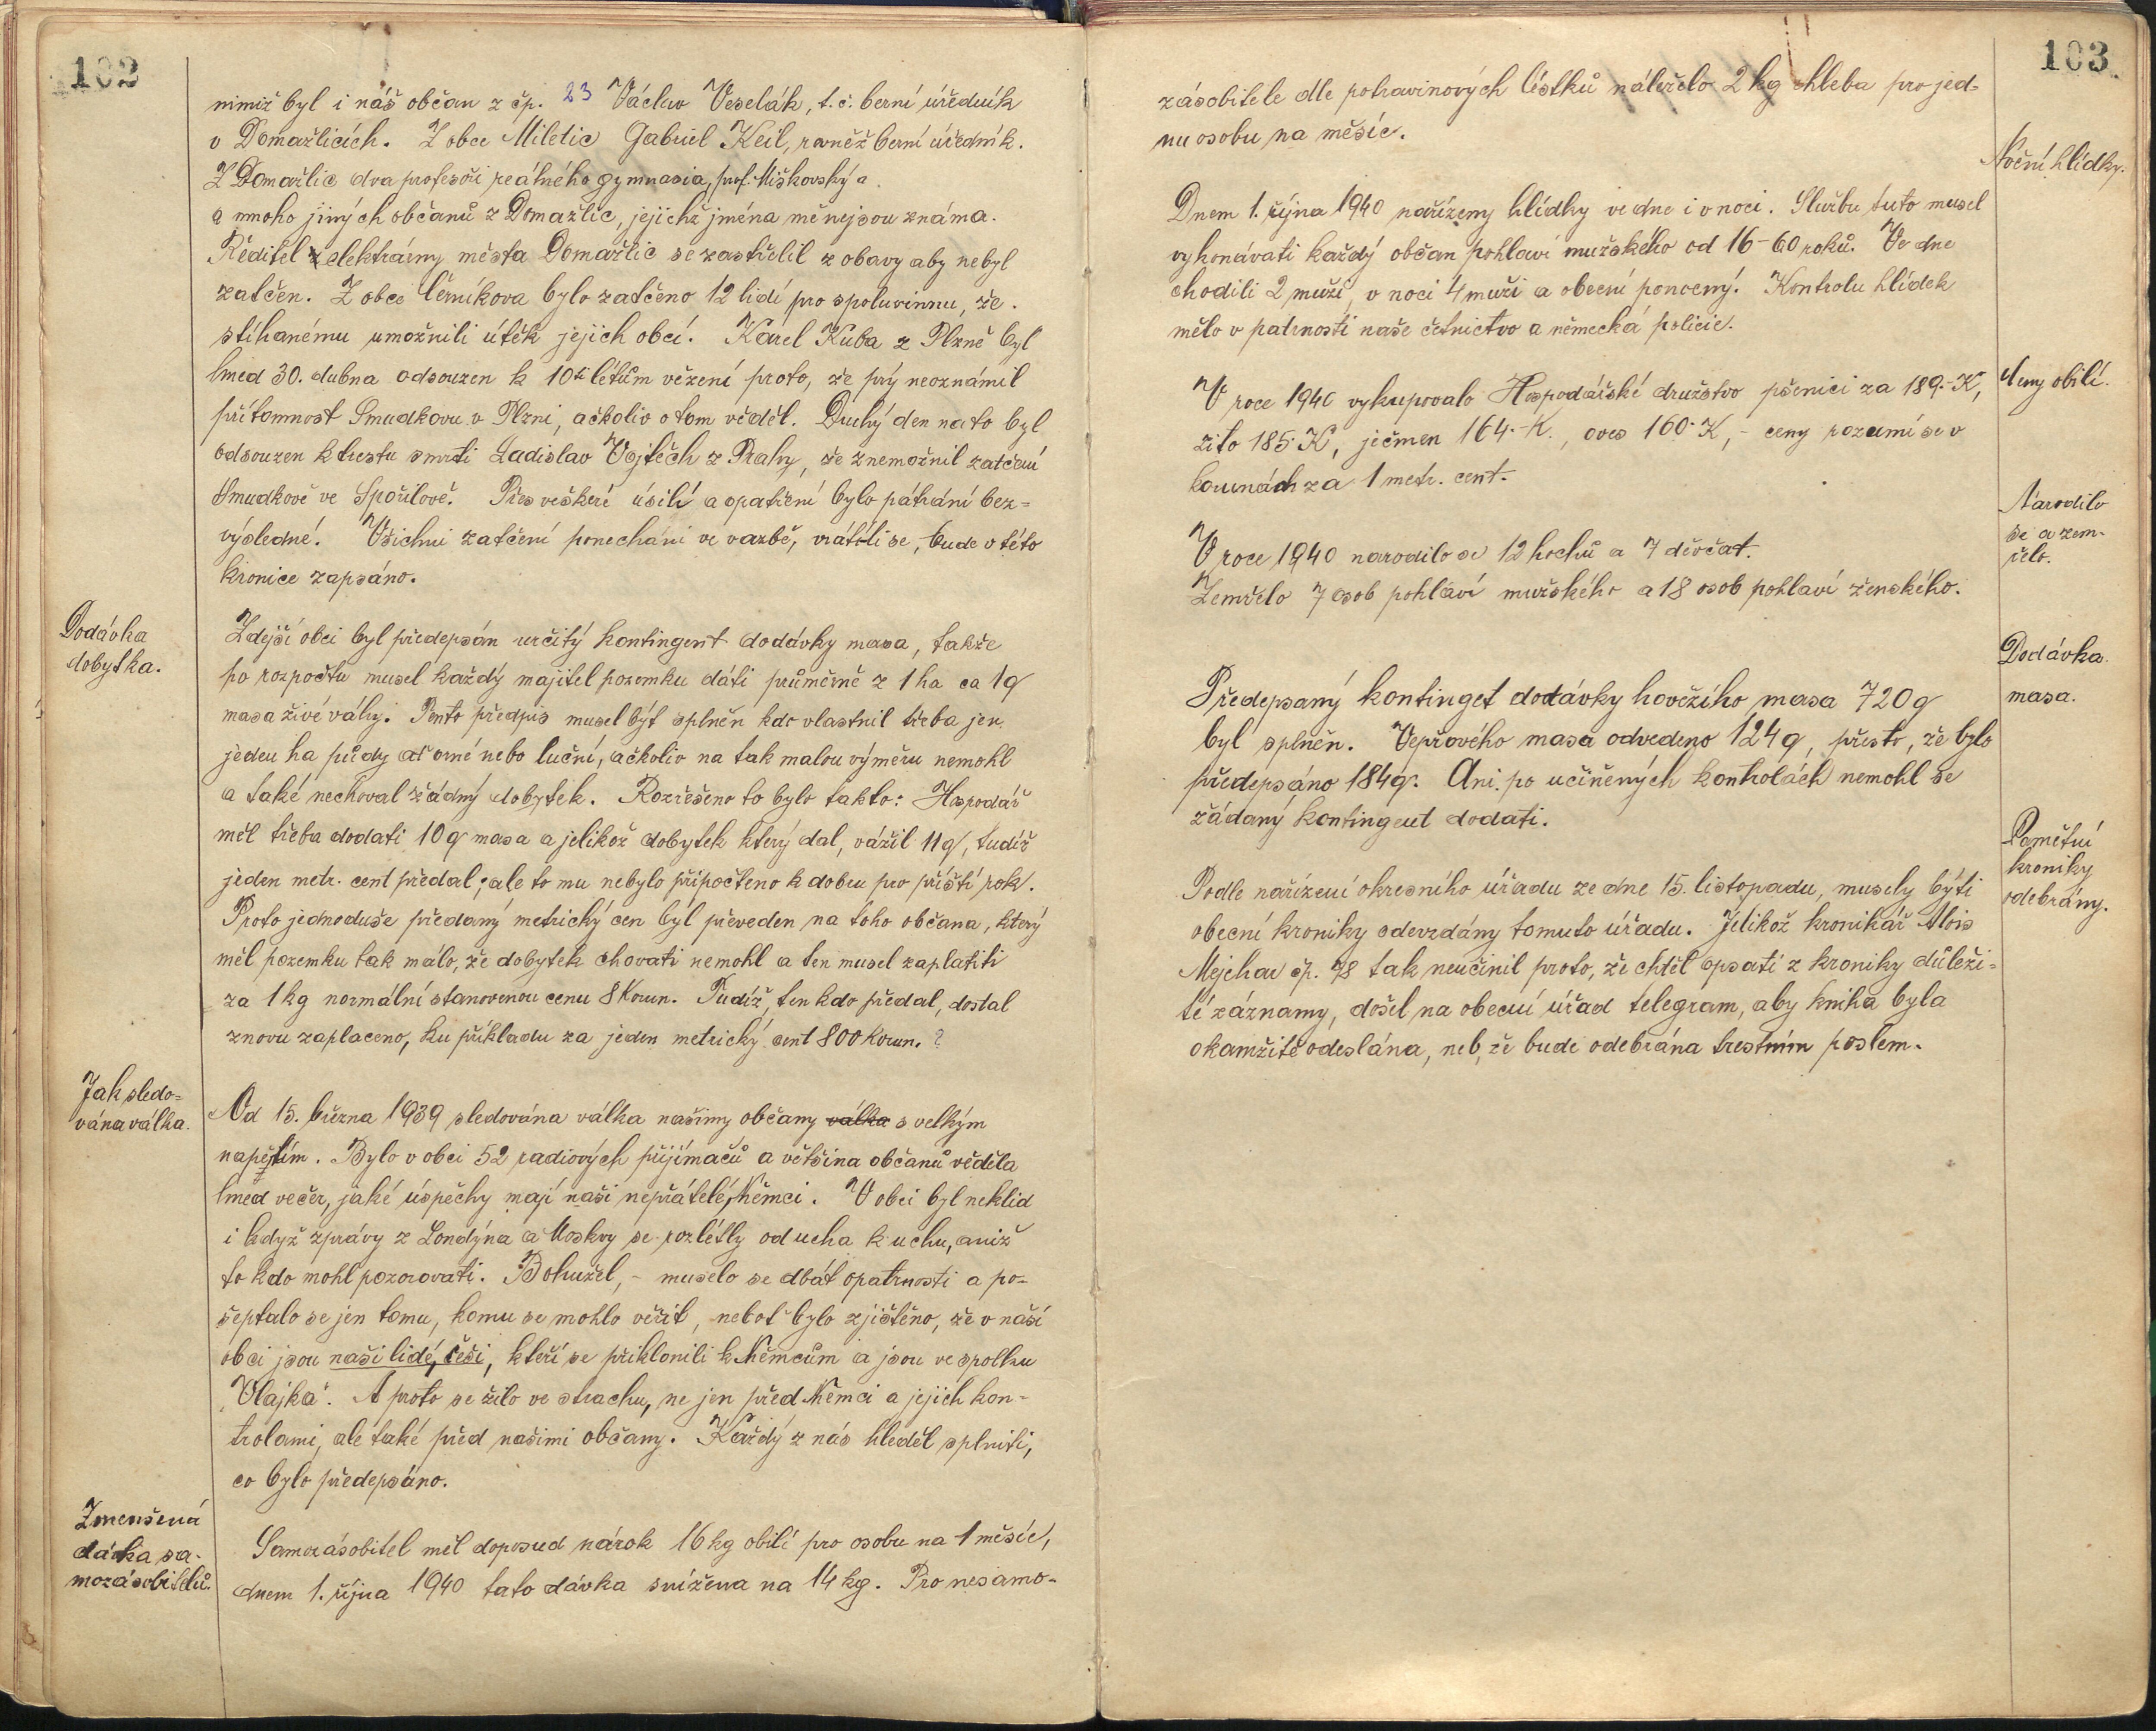 102
nimiž byl i náš občan z čp. 23 Václav Veselák, t.č. berní úředník
v Domažlicích. Z obce Miletic Gabriel Keil, rovněž berní úředník.
Z Domažlic dva profesoři reálného gymnasia, prof. Miškovský a
a mnoho jiných občanů z Domažlic, jejichž jména mě nejsou známa.
Ředitel elektrárny města Domažlic se zastřelil z obavy aby nebyl
zatčen. Z obce Černíkova bylo zatčeno 12 lidí pro spoluvinnu, že
stíhanému umožnili útěk jejich obcí. Karel Kuba z Plzně byl
hned 30. dubna odsouzen k 10ti létům vězení proto, že prý neoznámil
přítomnost Smudkovu v Plzni, ačkoliv o tom věděl. Druhý den na to byl
odsouzen k trestu smrti Ladislav Vojtěch z Prahy, že znemožnil zatčení
Smudkově ve Spořilově. Přes veškeré úsilí a opatření bylo pátrání bez=
výsledné! Všichni zatčení ponecháni ve vazbě, vrátili se, bude v této
kronice zapsáno.
Dodávka
dobytka.
Zdejší obci byl předepsán určitý kontingent dodávky masa, takže
po rozpočtu musel každý majitel pozemku dáti průměrně z 1 ha ca 1q
masa živé váhy. Tento předpis musel být splněn kdo vlastnil třeba jen
jeden ha půdy ať orné nebo luční, ačkoliv na tak malou výměru nemohl
a také nechoval žádný dobytek. Rozřešeno to bylo takto: Hospodář
měl třeba dodati 10q masa a jelikož dobytek který dal, vážil 11q, tudíž
jeden metr. cent předal, ale to mu nebylo připočteno k dobru pro příští rok.
Proto jednoduše předaný metrický cen byl převeden na toho občana, který
měl pozemku tak málo, že dobytek chovati nemohl a ten musel zaplatiti
za 1 kg normální stanovenou cenu 8 Korun. Tudíž, ten kdo předal, dostal
znovu zaplaceno, ku příkladu za jeden metrický cent 800 korun. ?
Jak sledo=
vána válka.
Od 15. března 1939 sledována válka našimy občany válka s velkým
napětím. Bylo v obci 52 radiových přijímačů a většina občanů věděla
hned večer, jaké úspěchy mají naši nepřátelé, Němci. V obci byl neklid
i když zprávy z Londýna a Moskvy se rozlétly od ucha k uchu, aniž
to kdo mohl pozorovati. Bohužel, - muselo se dbát opatrnosti a po=
šeptalo se jen tomu, komu se mohlo věřit, neboť bylo zjištěno, že v naší
obci jsou naši lidé, češi, kteří se přiklonili k Němcům a jsou ve spolku
„Vlajka". A proto se žilo ve strachu, ne jen před Němci a jejich kon-
trolami, ale také před našimi občany. Každý z nás hleděl splniti,
co bylo předepsáno.
Zmenšená
dávka sa-
mozásobitelů.
Samozásobitel měl doposud nárok 16 kg obilí pro osobu na 1 měsíc,
dnem 1. října 1940 tato dávka snížena na 14 kg. Pro nesamo-
103
zásobitele dle potravinových lístků náleželo 2 kg chleba pro jed=
nu osobu na měsíc.
Noční hlídky.
Dnem 1. října 1940 nařízeny hlídky ve dne i v noci. Službu tuto musel
vykonávati každý občan pohlaví mužského od 16-60 roků. Ve dne
chodili 2 muži, v noci 4 muži a obecní ponocný. Kontrolu hlídek
mělo v patrnosti naše četnictvo a německá policie.
Ceny obilí.
V roce 1940 vykupovalo Hospodářské družstvo pšenici za 189.-K,
žito 185.K, ječmen 164.-K., oves 160.K, - ceny rozumí se v
korunách za 1 metr. cent.
Narodilo
se a zem-
řelo.
V roce 1940 narodilo se 12 hochů a 7 děvčat.
Zemřelo 7 osob pohlaví mužského a 18 osob pohlaví ženského.
Dodávka
masa.
Předepsaný kontinget dodávky hovězího masa 720q
byl splněn. Vepřového masa odvedeno 124q, přesto, že bylo
předepsáno 184q. Ani po učiněných kontrolách nemohl se
žádaný kontingent dodati.
Pamětní
kroniky
odebrány.
Podle nařízení okresního úřadu ze dne 15. listopadu, musely býti
obecní kroniky odevzdány tomuto úřadu. Jelikož kronikář Alois
Mejchar čp. 78 tak neučinil proto, že chtěl opsati z kroniky důleži=
té záznamy, došel na obecní úřad telegram, aby kniha byla
okamžitě odeslána, neb, že bude odebrána trestním poslem.